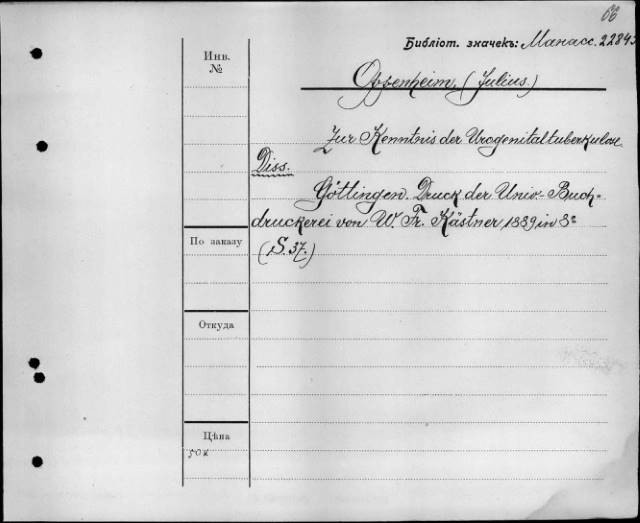 66
Библіот. значекъ: Манасс. 22843
Инв. №
Oppenheim, (Julius.)
Zur Kenntnis der Urogenitaltuberkulose
Diss.
Göttingen. Druck der Univ.-Buch-
druckerei von W. Fr. Kästner 1889 in 8º
(S. 37.)
По заказу
Откуда
Цѣна
50 к